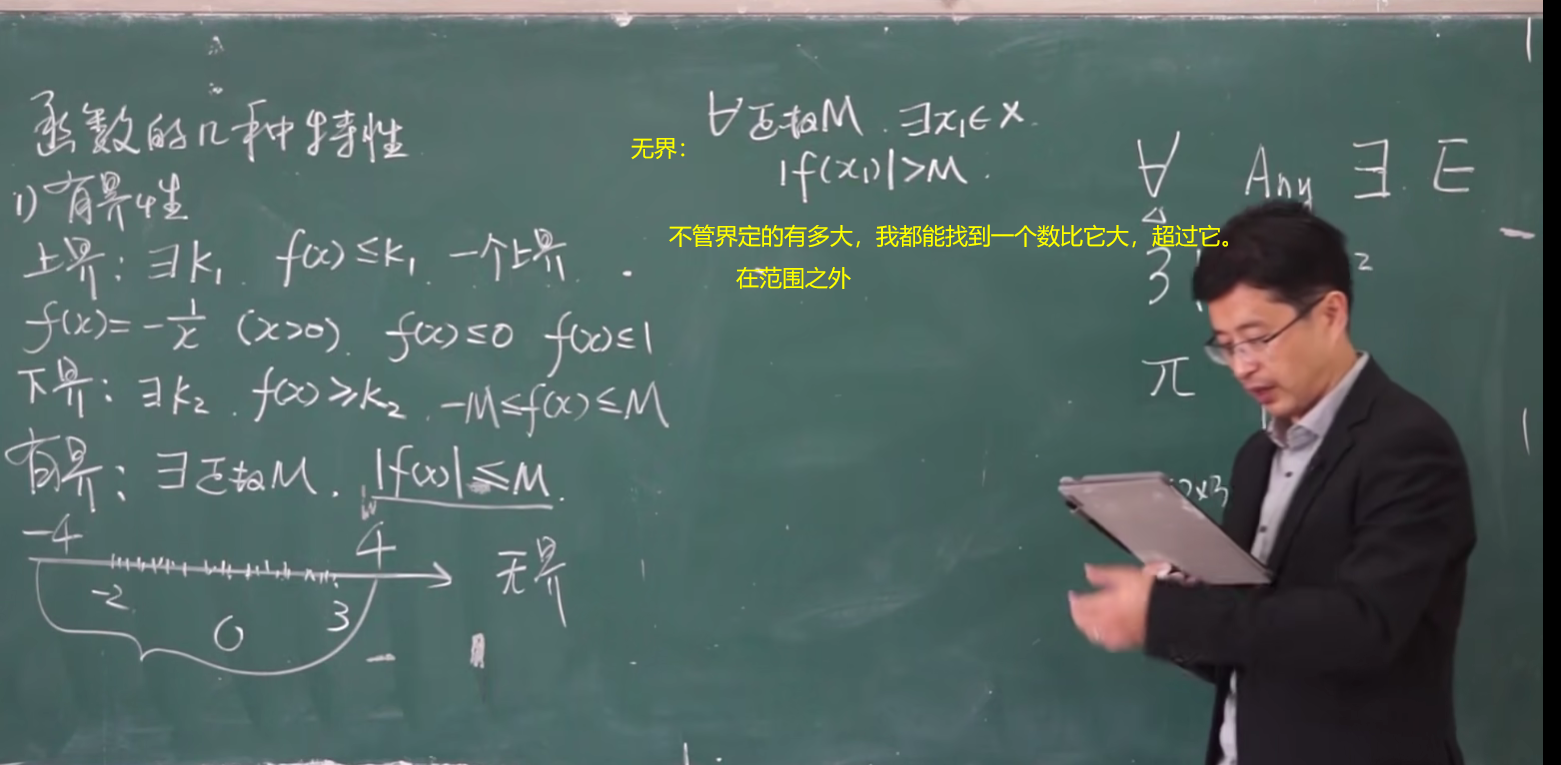 函数的几种特性
1) 有界性
上界：∃k₁. f(x)≤k₁ 一个上界.
f(x)=-1/x (x>0). f(x)≤0 f(x)≤1
下界：∃k₂. f(x)≥k₂. -M≤f(x)≤M
有界：∃正数M. |f(x)|≤M.
-4 4
-2 0 3
无界
∀正数M. ∃x₁∈X.
无界：
|f(x₁)|>M.
不管界定的有多大，我都能找到一个数比它大，超过它。
在范围之外
∀ Any ∃. E
3 2
π
2×3